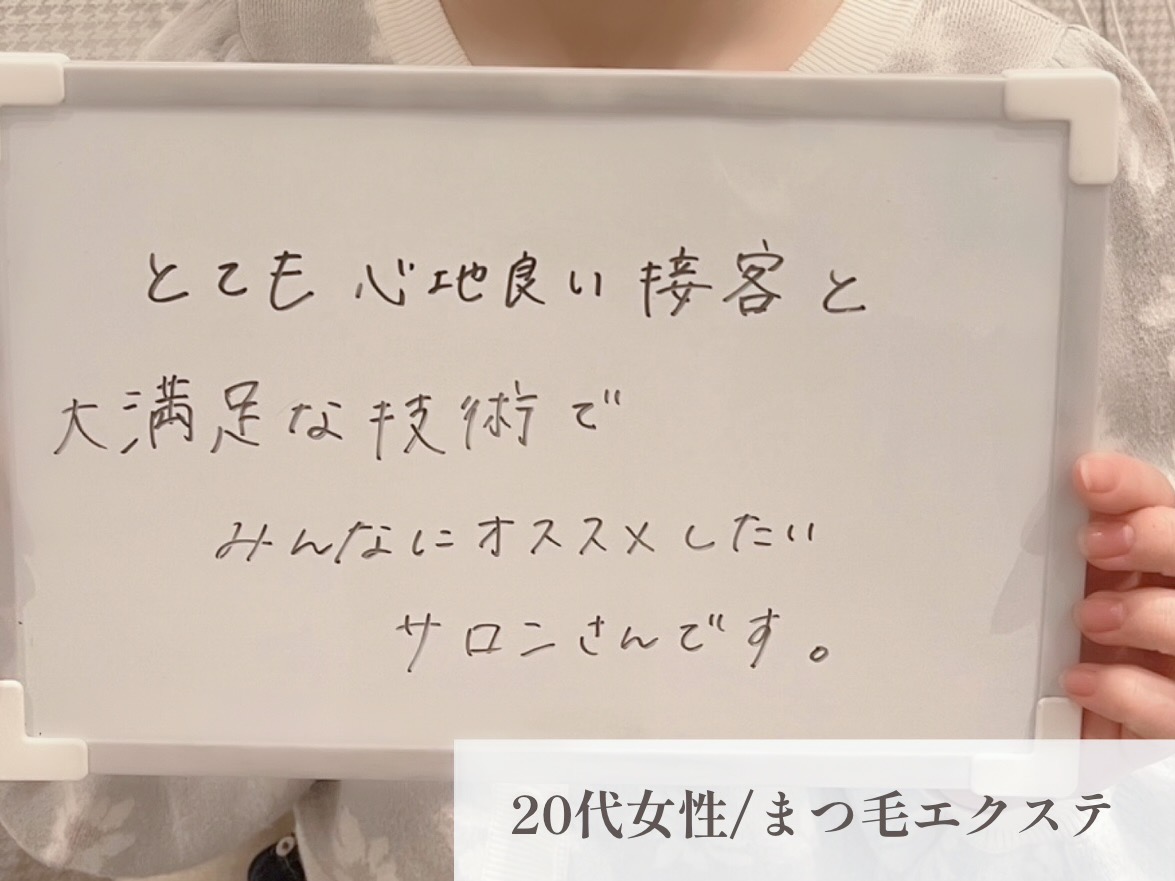 とても心地良い接客と
大満足な技術で
みんなにオススメしたい
サロンさんです。
20代女性/まつ毛エクステ